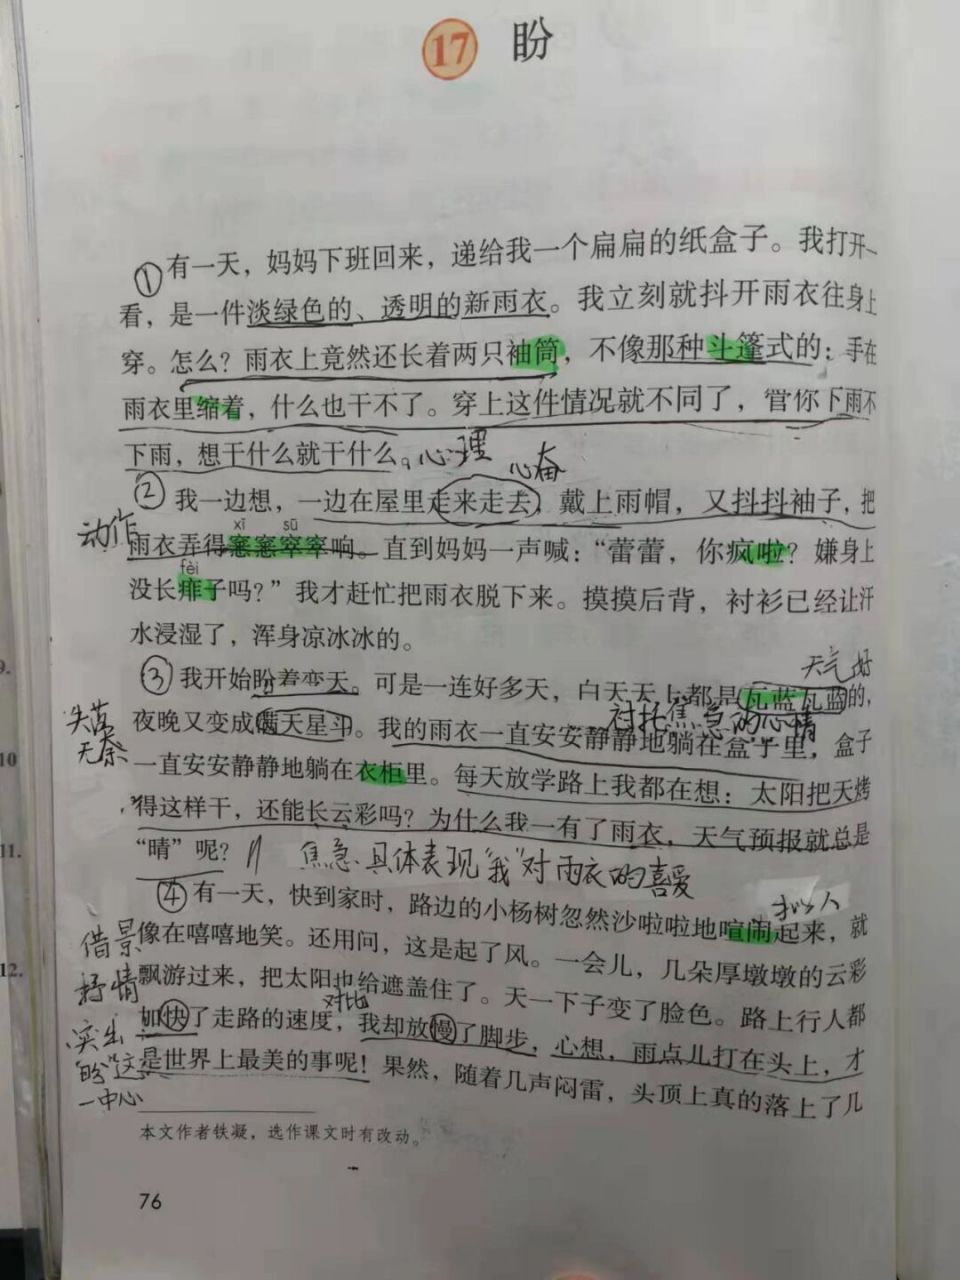 17 盼
①有一天，妈妈下班回来，递给我一个扁扁的纸盒子。我打开一
看，是一件淡绿色的、透明的新雨衣。我立刻就抖开雨衣往身上
穿。怎么？雨衣上竟然还长着两只袖筒，不像那种斗篷式的：手在
雨衣里缩着，什么也干不了。穿上这件情况就不同了，管你下雨不
下雨，想干什么就干什么。心理
心奋
②我一边想，一边在屋里走来走去，戴上雨帽，又抖抖袖子，把
动作
xī sū
雨衣弄得窸窸窣窣响。直到妈妈一声喊：“蕾蕾，你疯啦？嫌身上
fèi
没长痱子吗？”我才赶忙把雨衣脱下来。摸摸后背，衬衫已经让汗
水浸湿了，浑身凉冰冰的。
天气好
③我开始盼着变天。可是一连好多天，白天天上都是瓦蓝瓦蓝的，
失落
无奈
衬托焦急的心情
夜晚又变成满天星斗。我的雨衣一直安安静静地躺在盒子里，盒子
一直安安静静地躺在衣柜里。每天放学路上我都在想：太阳把天烤
得这样干，还能长云彩吗？为什么我一有了雨衣，天气预报就总是
“晴”呢？ 焦急 具体表现“我”对雨衣的喜爱
拟人
④有一天，快到家时，路边的小杨树忽然沙啦啦地喧闹起来，就
像在嘻嘻地笑。还用问，这是起了风。一会儿，几朵厚墩墩的云彩
飘游过来，把太阳也给遮盖住了。天一下子变了脸色。路上行人都
对比
加快了走路的速度，我却放慢了脚步，心想，雨点儿打在头上，才
是世界上最美的事呢！果然，随着几声闷雷，头顶上真的落上了几
借景
抒情
突出
“盼”这
一中心
本文作者铁凝，选作课文时有改动。
76
9.
10
11.
12.